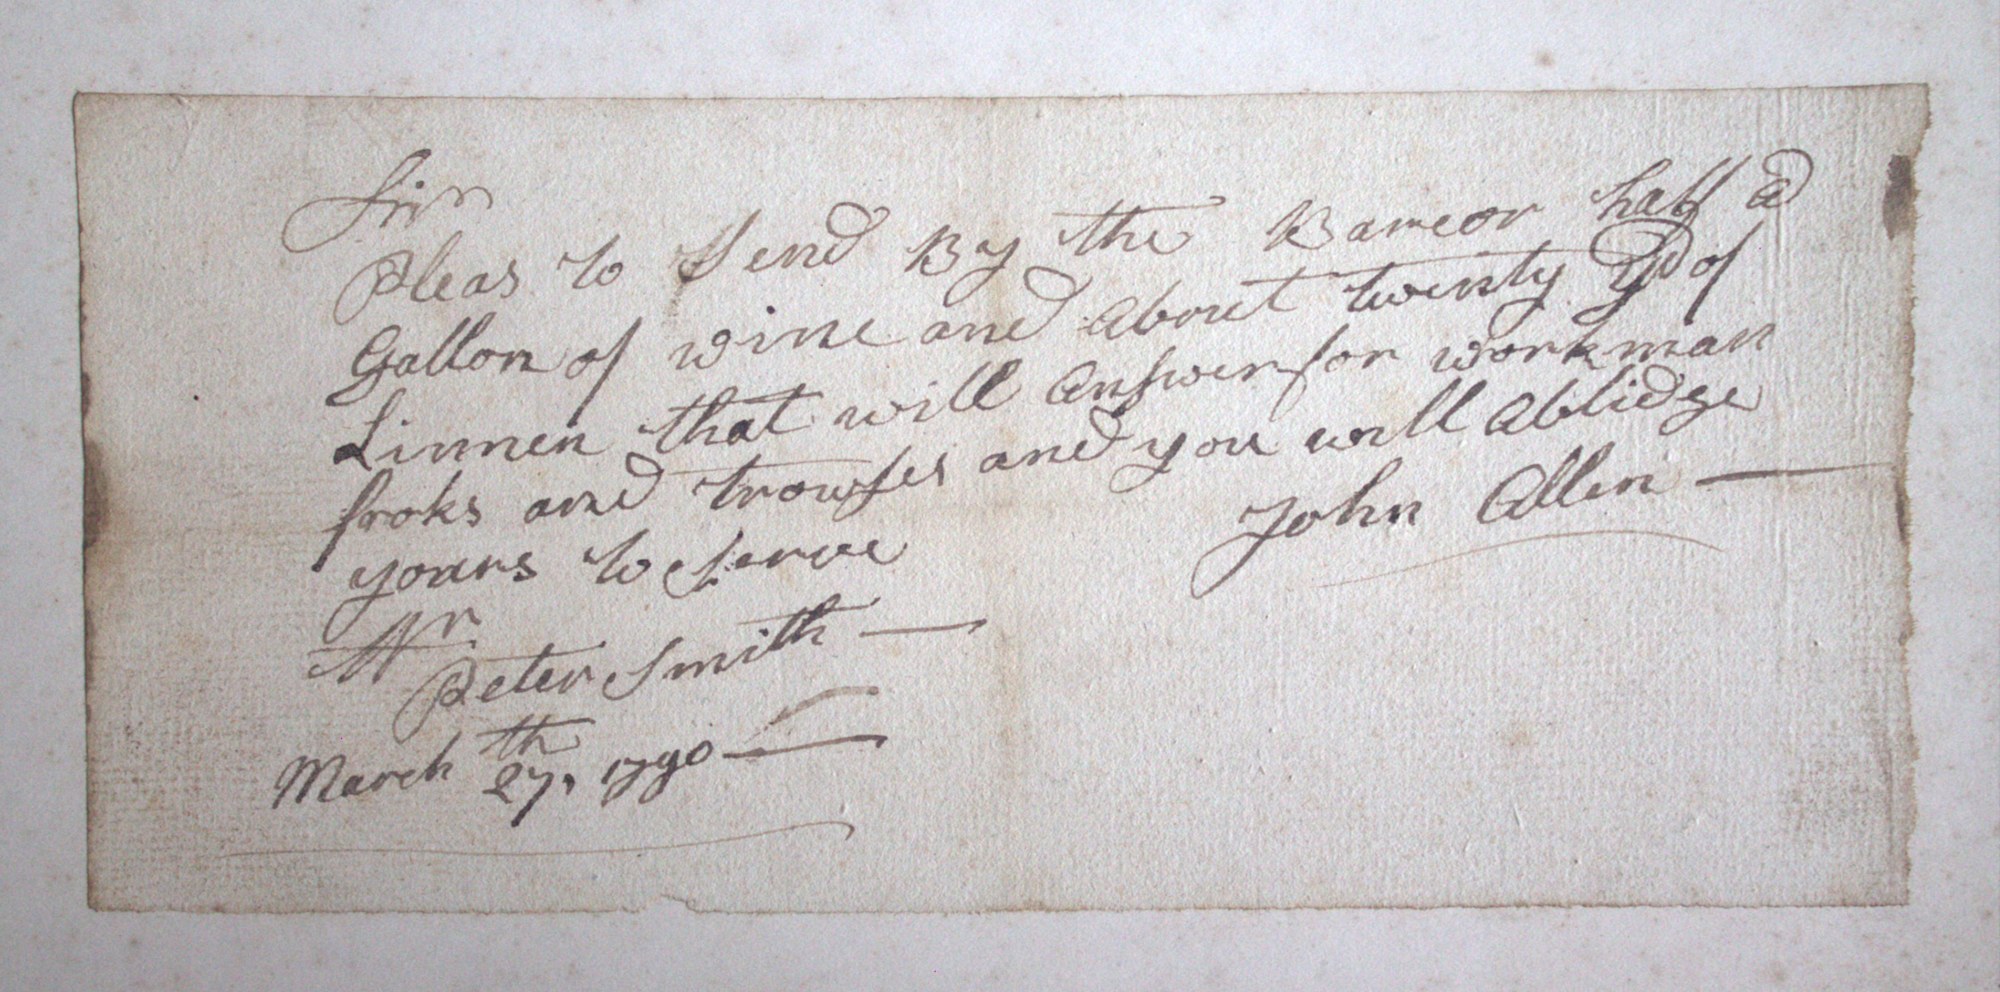 Sir
Pleas to Send By the Bareor half a
Gallon of wine and about twenty yd of
Linnen that will answer for workman
froks and trowses and you will ablidge
yours to serve John Allen
Mr.
Peter Smith
March 27th, 1790